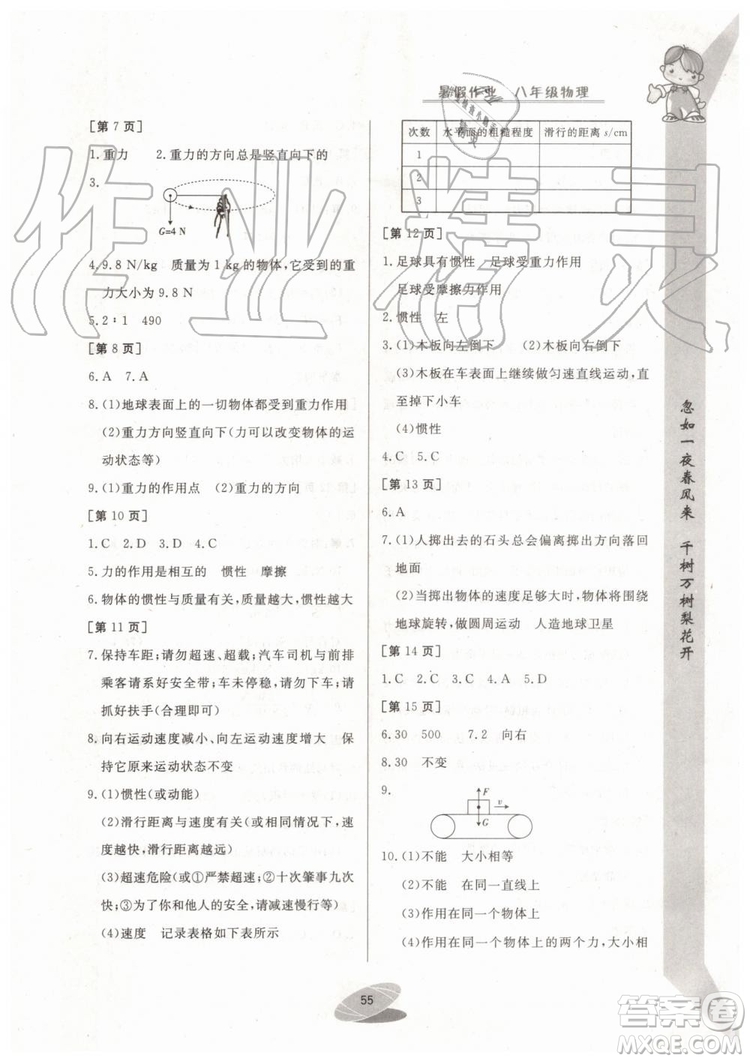 暑假作业 八年级物理
[第 7 页]
1.重力 2.重力的方向总是竖直向下的
3.
G=4 N
4.9.8 N/kg 质量为 1 kg 的物体,它受到的重
力大小为 9.8 N
5.2∶1 490
[第 8 页]
6.A 7.A
8.(1)地球表面上的一切物体都受到重力作用
(2)重力方向竖直向下(力可以改变物体的运
动状态等)
9.(1)重力的作用点 (2)重力的方向
[第 10 页]
1.C 2.D 3.D 4.D
5.力的作用是相互的 惯性 摩擦
6.物体的惯性与质量有关,质量越大,惯性越大
[第 11 页]
7.保持车距;请勿超速、超载;汽车司机与前排
乘客请系好安全带;车未停稳,请勿下车;请
抓好扶手(合理即可)
8.向右运动速度减小、向左运动速度增大 保
持它原来运动状态不变
9.(1)惯性(或动能)
(2)滑行距离与速度有关(或相同情况下,速
度越快,滑行距离越远)
(3)超速危险(或①严禁超速;②十次肇事九次
快;③为了你和他人的安全,请减速慢行等)
(4)速度 记录表格如下表所示
次数 水平面的粗糙程度 滑行的距离 s/cm
1
2
3
[第 12 页]
1.足球具有惯性 足球受重力作用
足球受摩擦力作用
2.惯性 左
3.(1)木板向左倒下 (2)木板向右倒下
(3)木板在车表面上继续做匀速直线运动,直
至掉下小车
(4)惯性
4.C 5.C
[第 13 页]
6.A
7.(1)人掷出去的石头总会偏离掷出方向落回
地面
(2)当掷出物体的速度足够大时,物体将围绕
地球旋转,做圆周运动 人造地球卫星
[第 14 页]
1.C 2.C 3.C 4.A 5.D
[第 15 页]
6.30 500 7.2 向右
8.30 不变
9.
F
v
G
10.(1)不能 大小相等
(2)不能 在同一直线上
(3)作用在同一个物体上
(4)作用在同一物体上的两个力,大小相
忽如一夜春风来 千树万树梨花开
55
作业精灵
答案圈
MXQE.COM